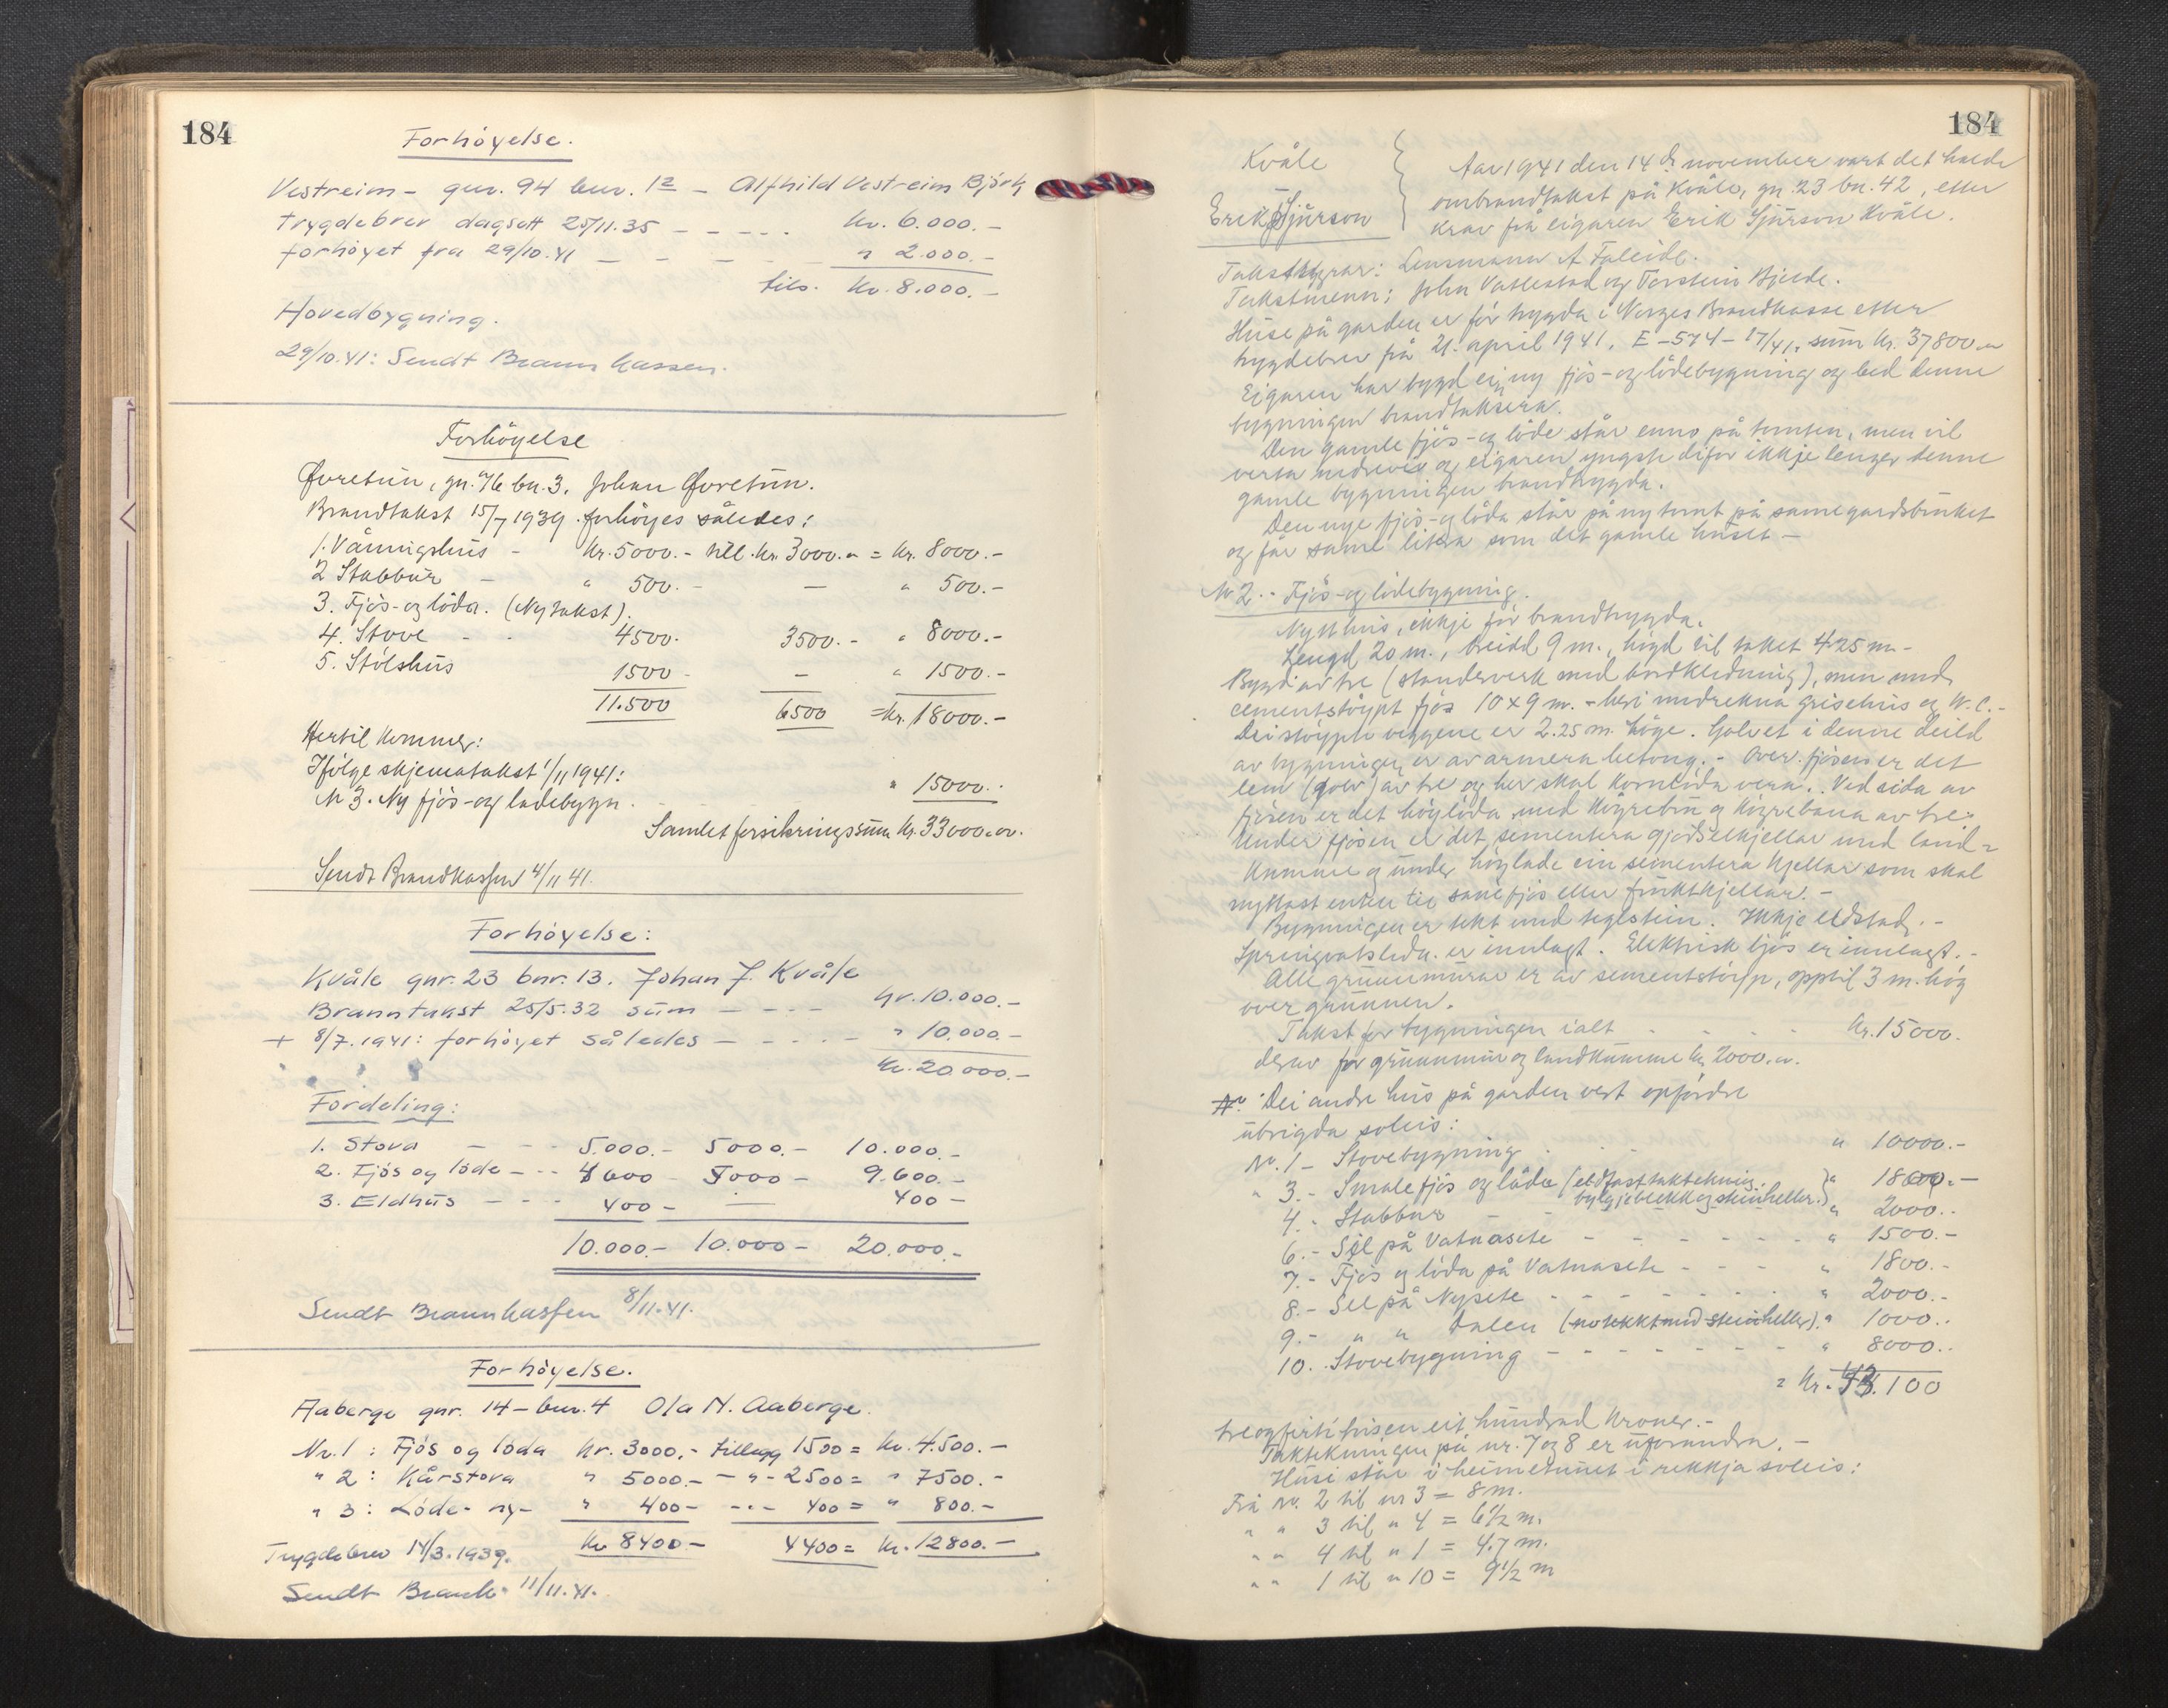 184
Forhöyelse.
Vestreim - gnr. 94 bnr. 12 - Alfhild Vestreim Björk
Trygdebrev dagsett 25/11.35 - - - - . kr. 6.000.-
forhöyet fra 29/10.41 - - - - " 2.000.-
tils. kr. 8.000.-
Hovedbygning.
29/10.41: Sendt Brannkassen.
Forhöyelse
Øvretün, gn. 76 bn. 3. Johan Øvretün.
Brandtakst 15/7 1939 forhöyes således:
1. Våningshüs - kr. 5000.- till. kr. 3000.- = kr. 8000.-
2 Stabbür - " 500.- - " 500.-
3. Fjös- og löda. (Ny takst).
4. Stove - - 4500.- 3500.- " 8000.-
5. Stölshüs 1500 - - " 1500.-
11.500 6500 = kr. 18000.-
Hertil kommer:
Ifölge skjematakst 1/11 1941:
N 3. Ny fjös- og ladebygn. - " 15000.-
Samlet forsikringssüm kr. 33000.-
Sendt Brandkassen 4/11 41.
Forhöyelse:
Kvåle gnr. 23 bnr. 13. Johan J. Kvåle
Branntakst 25/5.32 süm - - - - kr. 10.000.-
+ 8/7.1941: forhöyet således - - - - - " 10.000.-
kr. 20.000.-
Fordeling:
1. Stova - - - 5.000.- 5000.- 10.000.-
2. Fjös og löde - - - 4600 - 5000 - 9.600.-
3. Eldhüs - - - 400 - - 400 -
10.000.- 10.000 - 20.000.-
Sendt Brannkassen 8/11.41.
Forhöyelse.
Aaberge gnr. 14 - bnr. 4 Ola N. Aaberge.
Nr. 1 : Fjös og löda kr. 3000.- tillegg 1500 = kr. 4.500.-
" 2 : Kårstova " 5000.- - " - 2500 = " 7500.-
" 3 : Löde - ny - " 400 - - - - 400 = " 800.-
Trygdebrev 14/3.1939. kr 8400 - 4400 = kr. 12800.-
Sendt Brannk. 11/11.41.
184
Kvåle
Erik Sjürson
Aar 1941 den 14de november vart det halde
ombrandtakst på Kvåle, gn. 23 bn. 42, etter
krav frå eigaren Erik Sjürson Kvåle.
Takststyrar: Lensmann A Faleide.
Takstmenn: John Vatlestad og Torstein Bjelde.
Hüse på garden er för trygda i Norges Brandkasse etter
trygdebrev frå 21. april 1941. E-574-17/41, süm kr. 37800.-
Eigaren har bygd ei ny fjös- og lödebygning og bed denne
bygningen brandtaksera.
Den gamle fjös- og löde står enno på tomten, men vil
verta nedreve og eigaren yngste difor ikkje lenger denne
gamle bygningen brandtrygda.
Den nye fjös- og löda står på ny tomt på same gardsbrüket
og får same litra som det gamle hüset -
Nr 2. - Fjös- og lödebygning.
Nytt hüs, ikkje för brandtrygda.
Lengd 20 m., breidd 9 m., högd til taket 4.25 m. -
Bygd av tre (standerverk med bordkledning), men med
cementstöypt fjös 10 x 9 m. - heri medrekna grisehüs og W.C. -
Dei stöypte veggene er 2.25 m. höge. Golvet i denne deild
av bygningen er av armera betong. - Over fjösen er det
lem (golv) av tre og her skal kornlöda vera. Ved sida av
fjösen er det höylöda med köyrebrü og köyrebana av tre.
Under fjösen er det sementera gjödselkjellar med land-
kumme og ünder höylade ein sementera kjellar som skal
nyttast enten til saue fjös eller früktkjellar. -
Bygningen er tekt med teglstein. Ikkje eldstad. -
Springvatsledn. er innlagt. Elektrisk ljös er innlagt. -
Alle grünnmürar er av sementstöyp, opptil 3 m. hög
over grünnen.
Takst for bygningen ialt - - - - kr. 15000.
derav for grünnmür og landkümme kr 2000.-
Dei andre hüs på garden vert oppfördre
übrigda soleis:
Nr. 1 - Stovebygning . . . - " 10000.-
" 3. - Smalefjös og löda (eldfast taktekning: bylgjeblekk og steinheller.) " 1800.-
4. - Stabbur - - " 2000.-
6. - Sel på Vatnasete - - - - - - " 1500.-
7. - Fjös og löda på Vatnasete - - - " 1800.-
8. - Sel på Nysete - - - - - - " 2000.-
9. - " " Dalen (no tekkt med steinheller). " 1000.-
10. Stovebygning - - - - - - - " 8000.-
= kr. 43.100
treogfirti tüsen eit hündrad kroner. -
Taktekningen på nr. 7 og 8 er üforandra. -
Hüsi står i heimetünet i rekkja soleis:
Frå nr. 2 til nr 3 = 8 m.
" " 3 til " 4 = 6 1/2 m.
" " 4 til " 1 = 4.7 m.
" " 1 til " 10 = 9 1/2 m